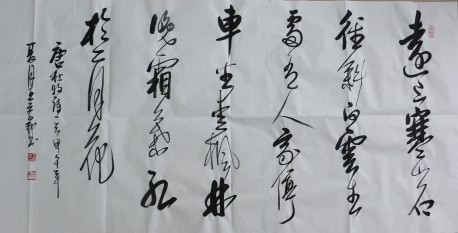 遠上寒山石
徑斜白雲生
處有人家停
車坐愛楓林
晚霜葉紅
於二月花
唐杜牧詩 甲午年
夏月